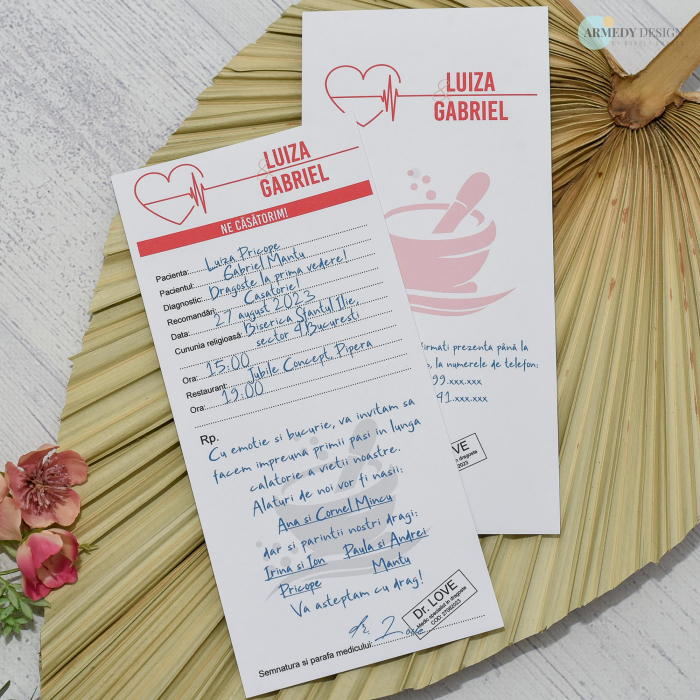 ARMEDY DESIGN
LUIZA
&
GABRIEL
LUIZA
&
GABRIEL
NE CĂSĂTORIM!
Pacienta: Luiza Pricope
Pacientul: Gabriel Mantu
Diagnostic: Dragoste la prima vedere!
Recomandări: Casatorie!
Data: 27 august 2023
Cununia religioasă: Biserica Sfantul Ilie,
sector 4 Bucuresti
Ora: 15:00
Restaurant: Jubile Concept, Pipera
Ora: 19:00
Rp.
Cu emotie si bucurie, va invitam sa
facem impreuna primii pasi in lunga
calatorie a vietii noastre.
Alaturi de noi vor fi nasii:
Ana si Cornel Mincu
dar si parintii nostri dragi:
Irina si Ion Paula si Andrei
Pricope Mantu
Va asteptam cu drag!
Dr. LOVE
Medic specialist in dragoste
Semnatura si parafa medicului:
firmati prezenta până la
, la numerele de telefon:
99.xxx.xxx
41.xxx.xxx
VE
in dragoste